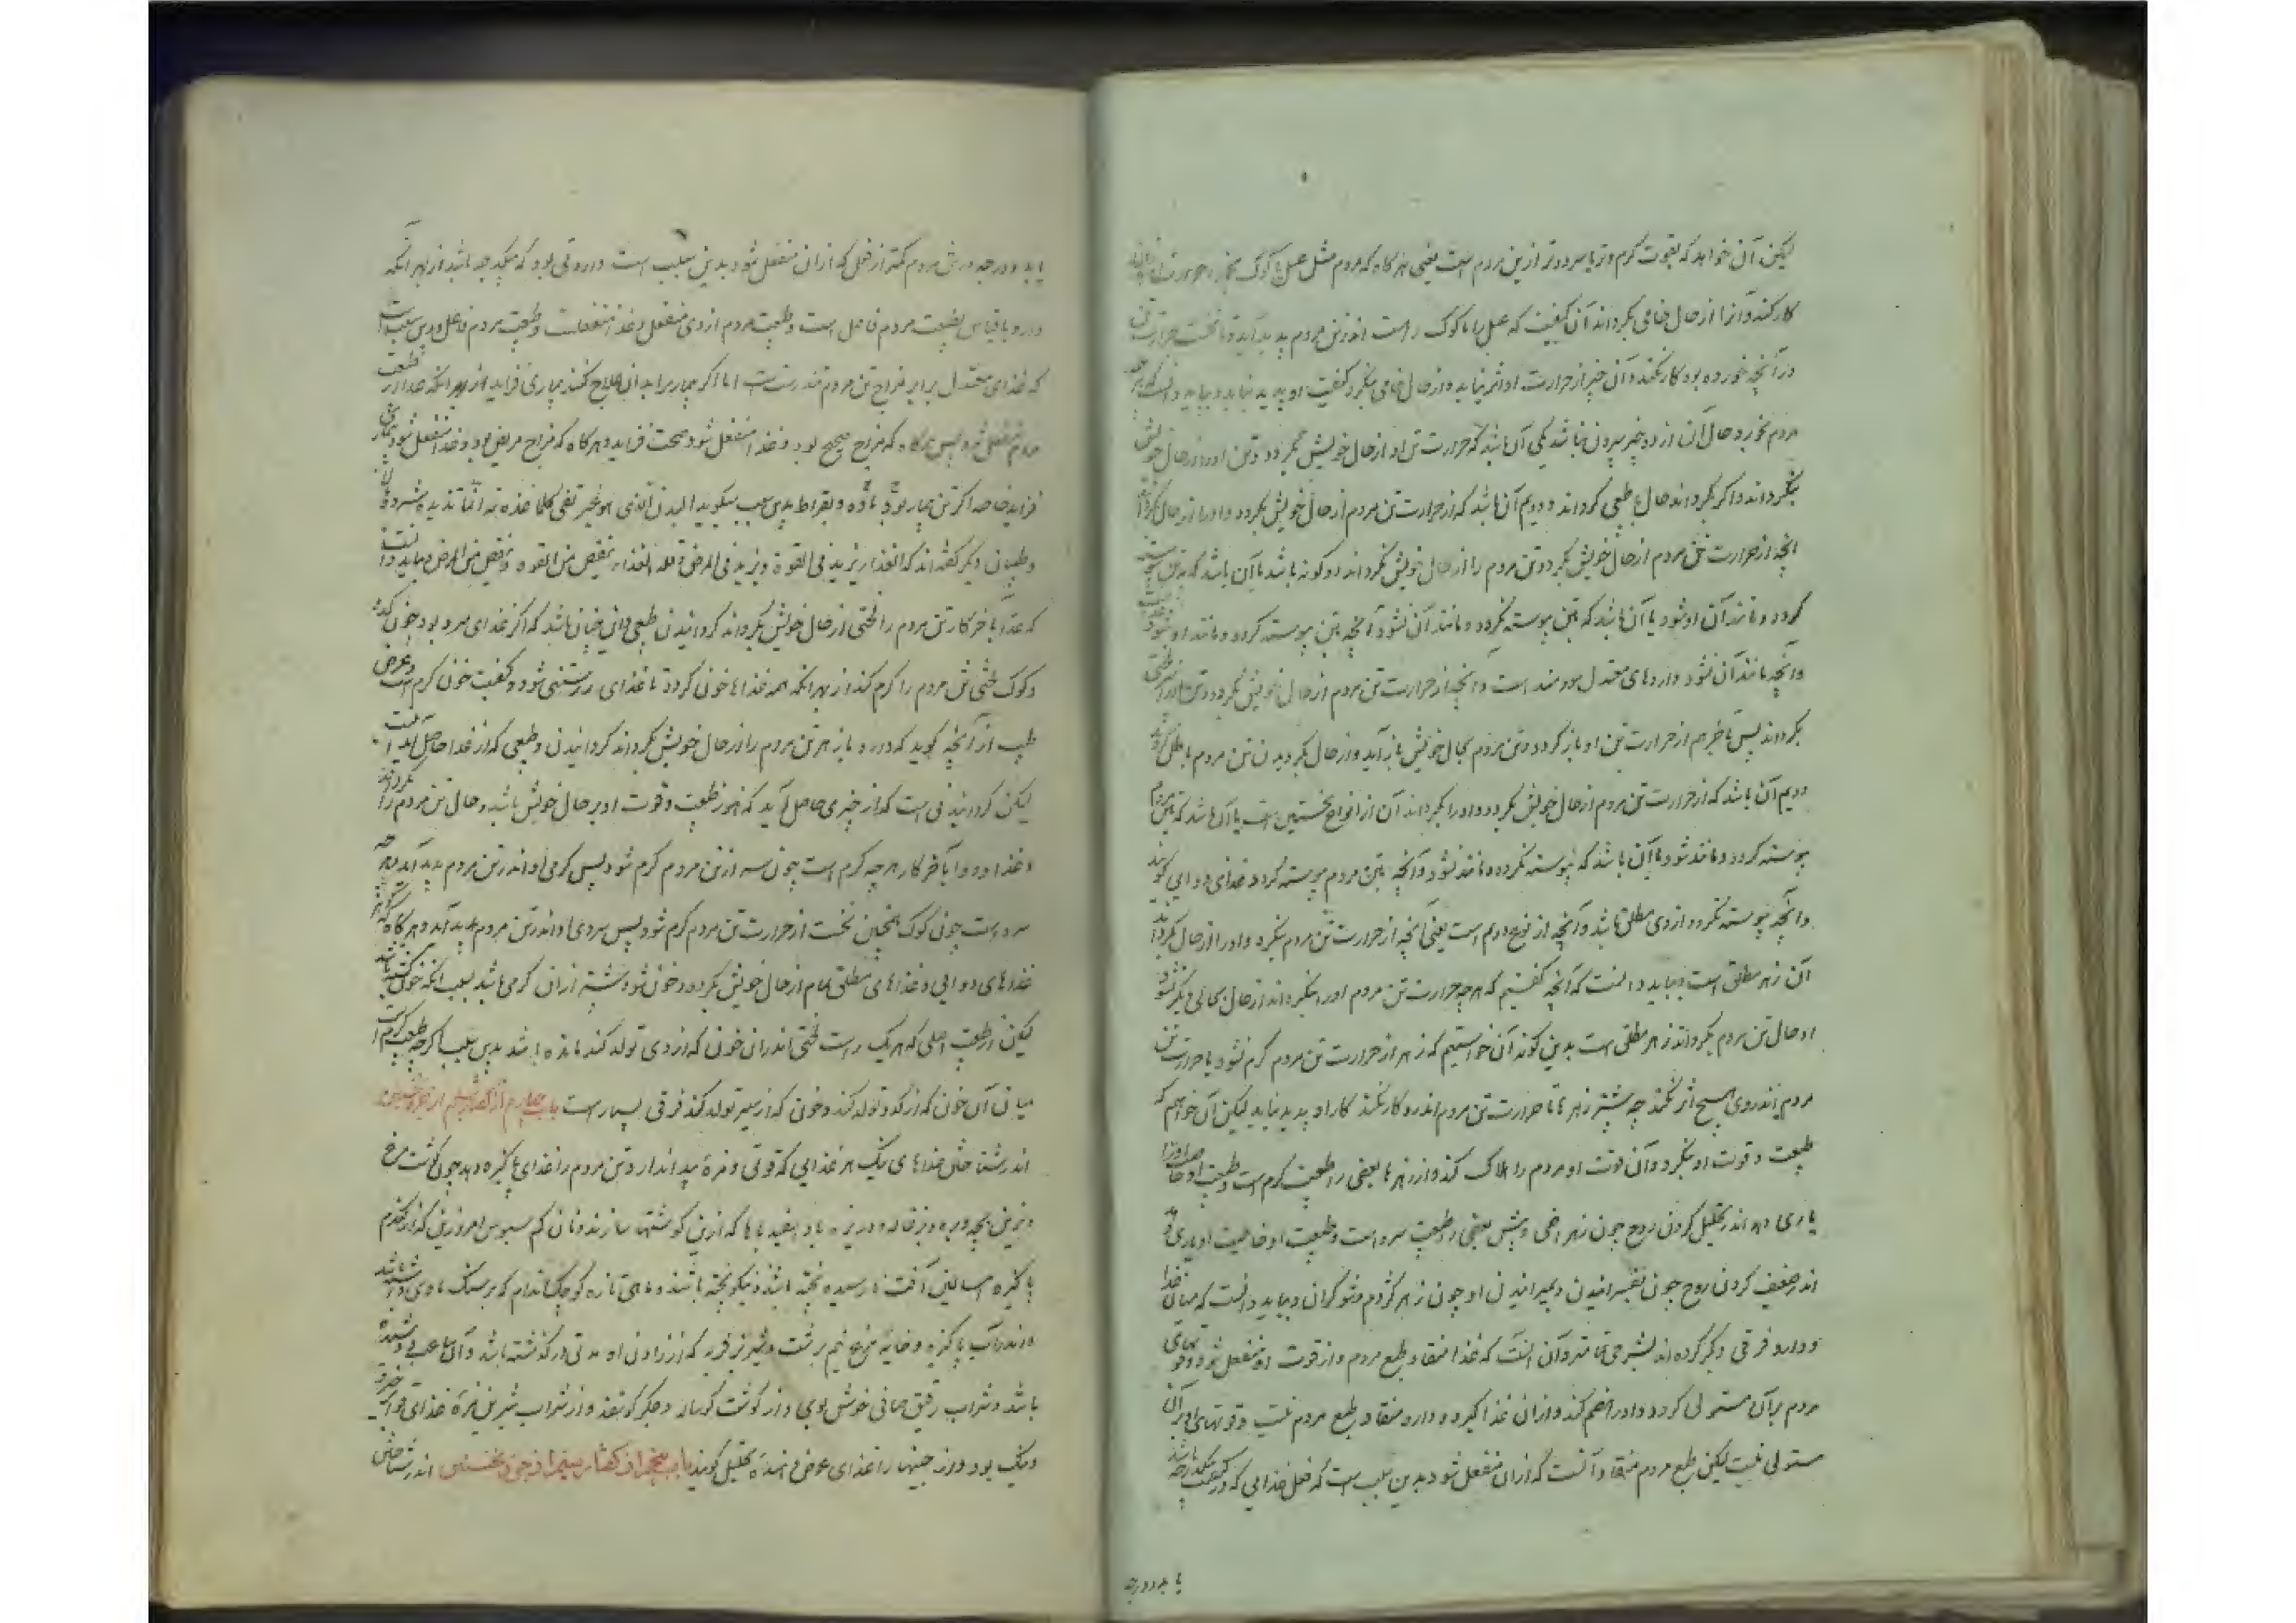 لیکن آن خواهد که بقوت گرم و تر یا سرد و تر از تن مردم است یعنی هرگاه که مردم مثل عسل یا کوک بخورد و حرارت
کار کند و آنرا از حال خامی بگرداند آن کیفیت که عسل را یا کوک راست اندر تن مردم پدید آید و تا نخست حرارت تن
در آنچه خورده بود کار نکند و آن چیز از حرارت او اثر نیابد و از حال خامی بنگردد کیفیت او پدید نیاید و بباید دانست که هرچه
مردم بخورد حال آن از دو چیز بیرون نباشد یکی آن باشد که حرارت تن او از حال خویش بگردد و تن او را از حال خویش
بنگرداند و اگر بگرداند حال طبیعی گرداند و دویم آن باشد که از حرارت تن مردم از حال خویش بگردد و او را از حال بگرداند
آنچه از حرارت تن مردم از حال خویش بگردد و تن مردم را از حال خویش نگرداند دو گونه باشد یا آن باشد که بتن پیوسته
گردد و مانند آن او شود یا آن باشد که بتن پیوسته نگردد و مانند آن نشود آنچه بتن پیوسته گردد و مانند او شود
و آنچه مانند آن نشود داروهای معتدل سودمند است و آنچه از حرارت تن مردم از حال خویش بگردد و تن او را لختی
بگرداند پس بآخر هم از حرارت تن او باز گردد و تن مردم بحال خویش باز آید و از حال بگردیدن تن مردم باطل گردد
دویم آن باشد که از حرارت تن مردم از حال خویش بگردد و او را بگرداند آن از انواع نخستین است یا آن باشد که بتن مردم
پیوسته گردد و مانند شود یا آن باشد که پیوسته نگردد و مانند نشود و آنچه بتن مردم پیوسته گردد غذای دوایی گویند
و آنچه پیوسته نگردد از وی مطلق باشد و آنچه از نوع دویم است یعنی آنچه از حرارت تن مردم نگردد و او را از حال بگرداند
آن زهر مطلق است و بباید دانست که آنچه گفتیم که هرچه حرارت تن مردم او را بنگرداند از حال بحالی دیگر نشود
او حال تن مردم بگرداند زهر مطلق است بدین گونه آن خواستیم که زهر از حرارت تن مردم گرم نشود یا حرارت تن
مردم اندر وی هیچ اثر نکند چه بیشتر زهرها تا حرارت تن مردم اندر و کار نکند کار او پدید نیاید لیکن آن خواهم که
طبیعت و قوت او نگردد و آن قوت او مردم را هلاک کند و از زهرها بعضی را طبیعت گرم است و طبیعت او خاصیت او را
یاری دهد اندر تحلیل کردن روح چون زهر افعی و بیش بعضی را طبیعت سرد است و طبیعت او خاصیت او یاری دهد
اندر ضعیف کردن روح چون بفسرانیدن و بمیرانیدن او چون زهر کژدم و شوکران و بباید دانست که میان غذا
و دارو فرقی دیگر کرده اند بشرحی تمامتر و آن آنست که غذا منقاد طبع مردم و از قوت او منفعل شود و قوتهای
مردم بر آن مستولی گردد و او را هضم کند و از آن غذا گیرد و دارو منقاد طبع مردم نیست و قوتهای او بر آن
مستولی نیست لیکن طبع مردم منقاد آنست که از آن منفعل شود بدین سبب است که فعل غذایی که در کیفیت یکدرجه باشد
یا بدو درجه
یابد و درجه در تن مردم کمتر از فعل که از آن منفعل شود بدین سبب است داروئی بود که یکدرجه باشد از بهر آنکه
دارو با قیاس بطبیعت مردم فاعل است و طبیعت مردم از وی منفعل و غذا منفعلست و طبیعت مردم فاعل و بدین سبب است
که غذای معتدل برابر مزاج تن مردم تندرست است اما اگر بیمار را بدان علاج کنند بیماری فزاید از بهر آنکه غذا از طبیعت
مردم منفعل شود پس هرگاه که مزاج صحیح بود و غذا منفعل شود صحت فزاید و هرگاه که مزاج مریض بود و غذا منفعل شود بیماری
فزاید خاصه اگر تن بیمار بود با ماده و بقراط بدین سبب میگوید البدن الذی هو غیر نقی کلما غذوته انما تزیده شرا
و طبیبان دیگر گفته اند که الغذاء یزید فی القوة و یزید فی المرض و قلة الغذاء ینقص من القوه و ینقص من المرض و بباید دانست
که غذا بآخر کار تن مردم را لختی از حال خویش بگرداند گردانیدن طبیعی و این چنان باشد که اگر غذای سرد بود چون کدو
و کوک لختی تن مردم را گرم کند از بهر آنکه همه غذاها خون گردد تا غذای راستی شود و کیفیت خون گرم است و غرض
طبیب از آنچه گوید که دارو یا زهر تن مردم را از حال خویش بگرداند گردانیدن و طبیعی که از غذا حاصل آید نیست
لیکن گردانیدنی است که از چیزی حاصل آید که هنوز طبیعت و قوت او بر حال خویش باشد و حال تن مردم را بگرداند
و غذا و دوا بآخر کار هرچه گرم است چون سه از تن مردم گرم شود پس گرمی او اندر تن مردم پدید آید و هرچه
سرد است چون کوک همچنین نخست از حرارت تن مردم گرم شود پس سردی او اندر تن مردم پدید آید و هرگاه که
غذاهای دوایی و غذاهای مطلق تمام از حال خویش بگردد و خون شود بیشتر از آن گرمی باشد بسبب آنکه خون گشته باشد
لیکن از طبیعت اصلی که هر یک راست لختی اندران خون که از وی تولد کند مانده باشد بدین سبب اگرچه طبع خون گرم است
میان آن خون که از کدو تولد کند و خون که از سیر تولد کند فرقی بسیار است باب چهارم از گفتار سیم از جزو نخستین
اندر شناختن غذاهای نیک هر غذایی که قوتی و مزهٔ پیدا ندارد تن مردم را غذای پاکیزه دهد چون گوشت مرغ
و بزین بچه و بره و بزغاله و ریزه با و اسفیدباها که ازین گوشتها سازند و نان کم سبوس امروزین که از گندم
پاکیزه امسالین آفت نارسیده پخته باشند و نیکو پخته باشند و ماهی تازه کوچک اندام که بر سنگ ماوی داشته باشد
و اندر آب پاکیزه و خایهٔ مرغ نیم برشت و شیر بز فربه که از زادن او مدتی درگذشته باشد و آن ماعز
باشد و شراب رقیق صافی خوش بوی و از گوشت گوساله و جگر گوسفند و از شراب شیرین مزهٔ غذای
و نیک بود و زرد چنینها را غذای عوض فی البدل تحلیل گویند باب پنجم از گفتار سیم از جزو نخستین اندر شناختن